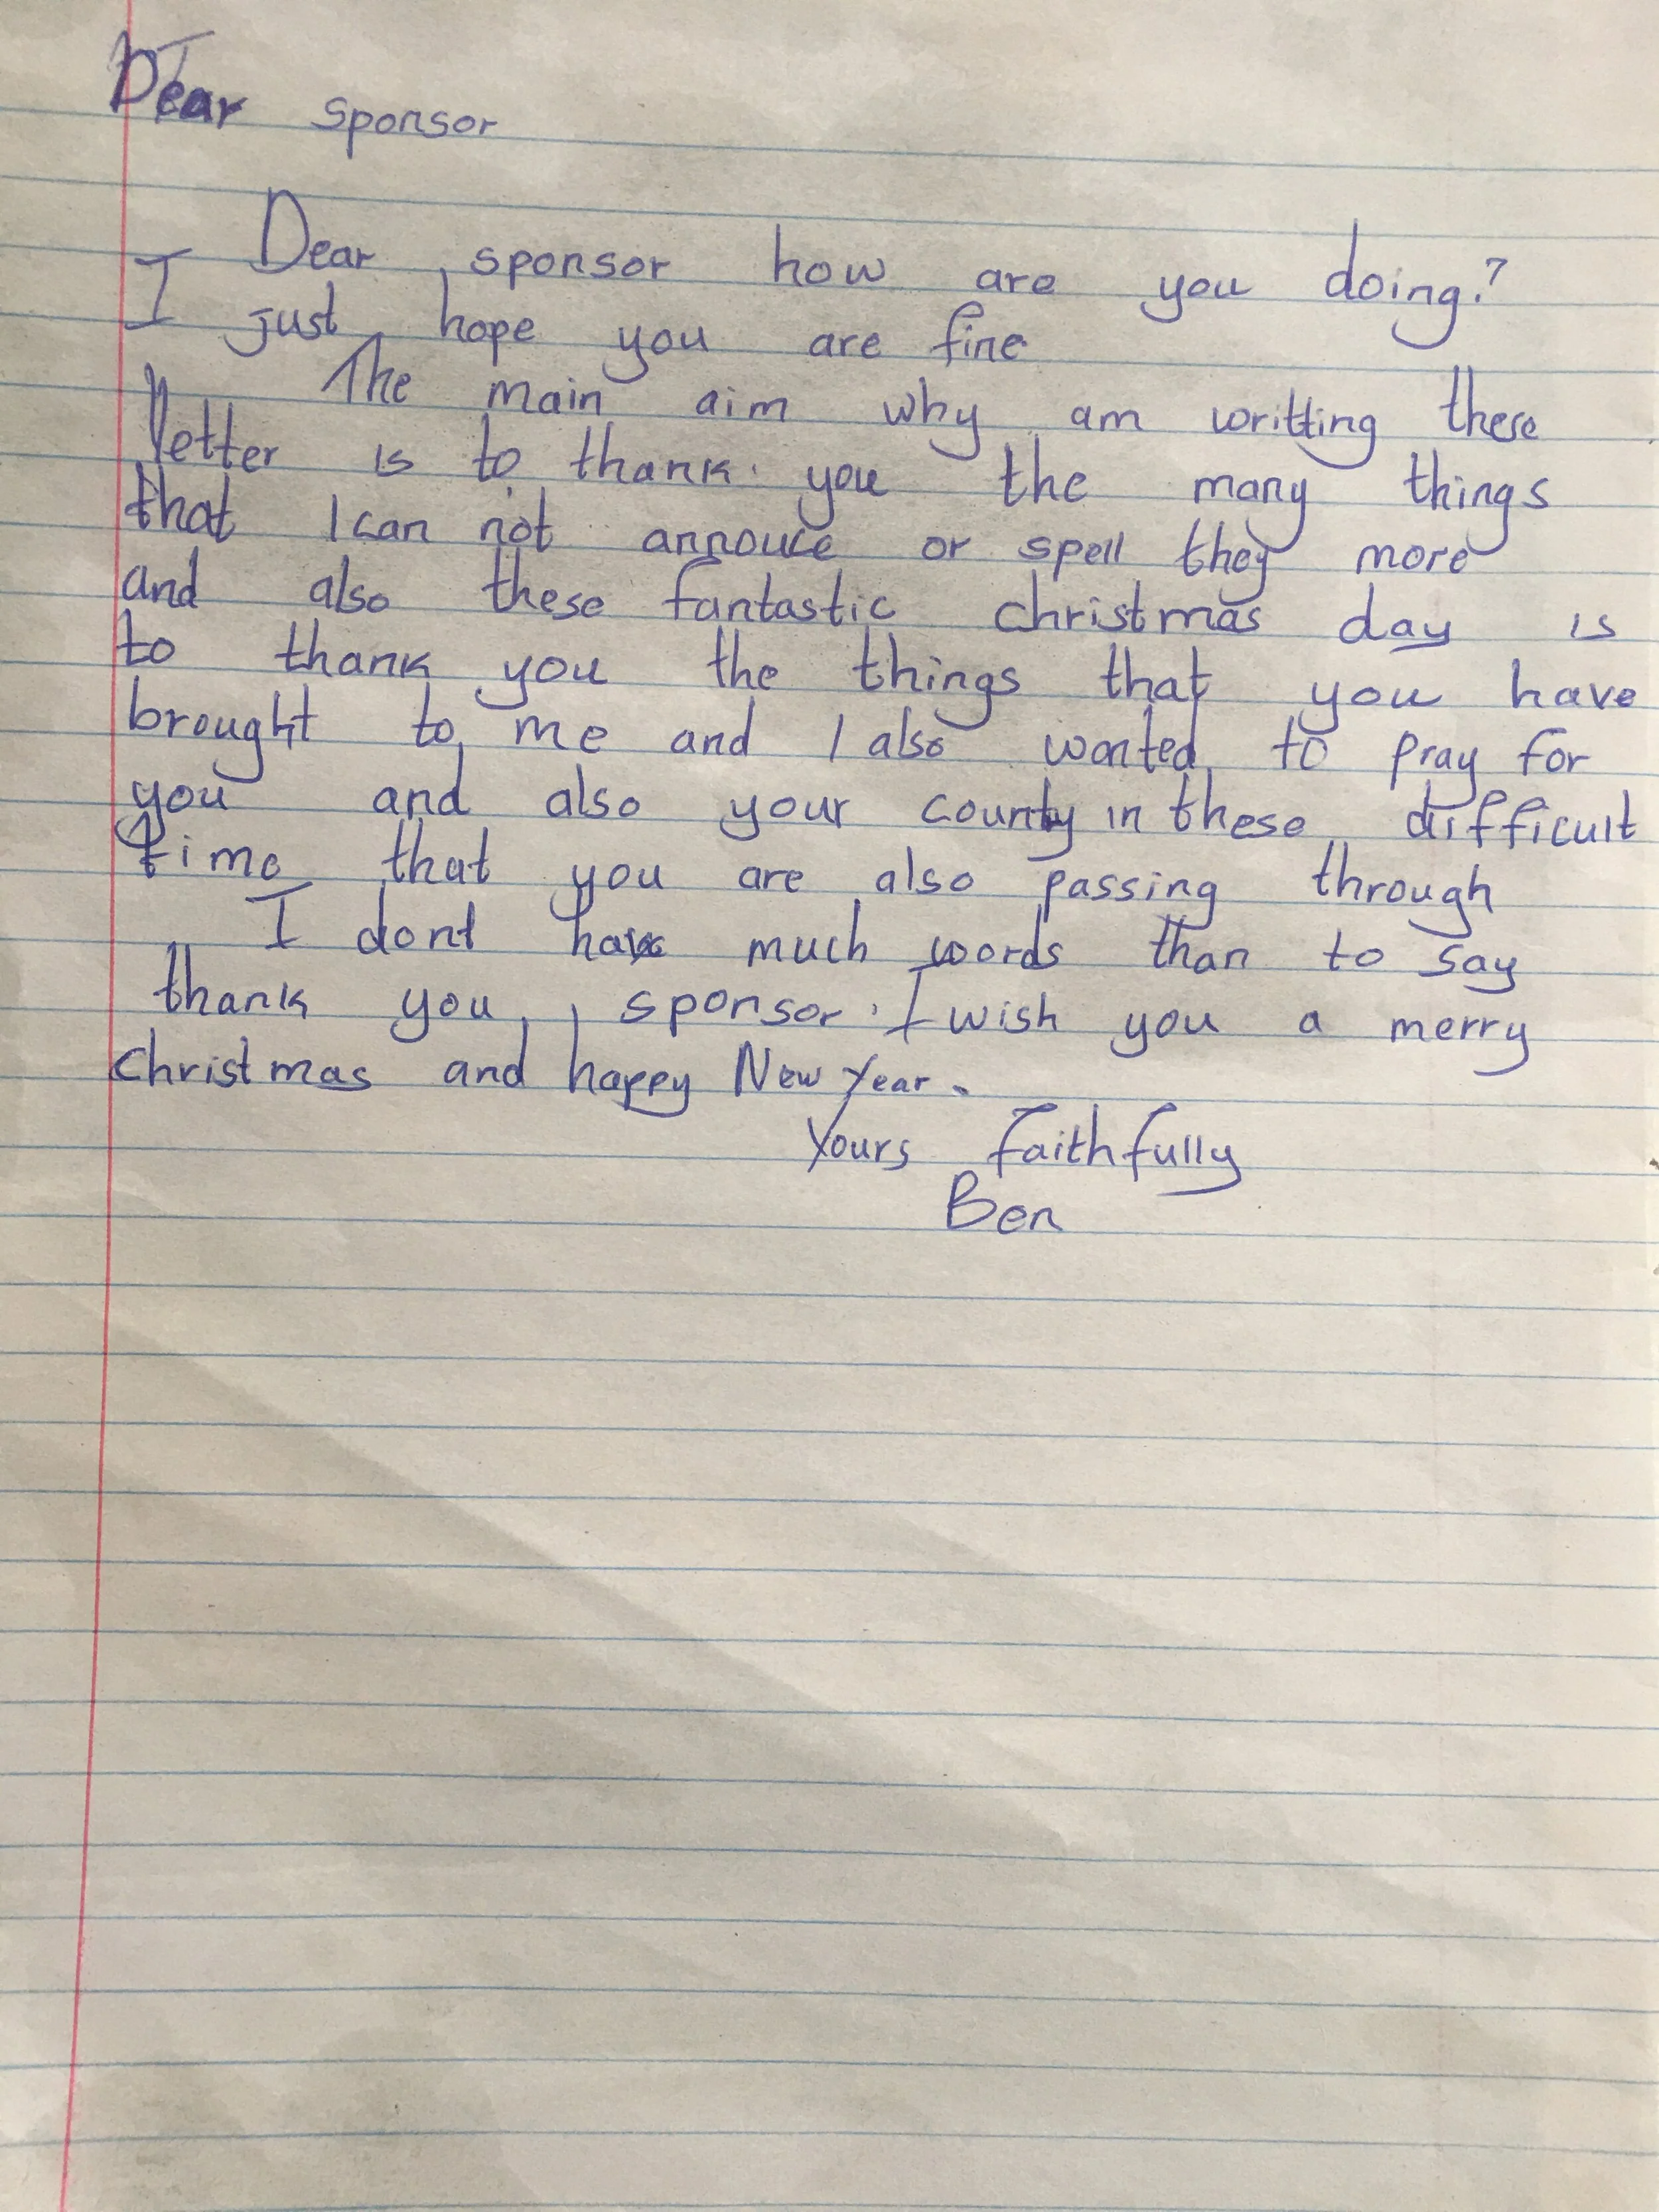 Dear sponsor
Dear sponsor how are you doing?
I just hope you are fine
The main aim why am writting these
letter is to thank you the many things
that I can not annouce or spell they more
and also these fantastic christmas day is
to thank you the things that you have
brought to me and I also wanted to pray for
you and also your county in these difficult
time that you are also passing through
I dont have much words than to say
thank you, sponsor. I wish you a merry
christmas and happy New Year.
Yours faithfully
Ben